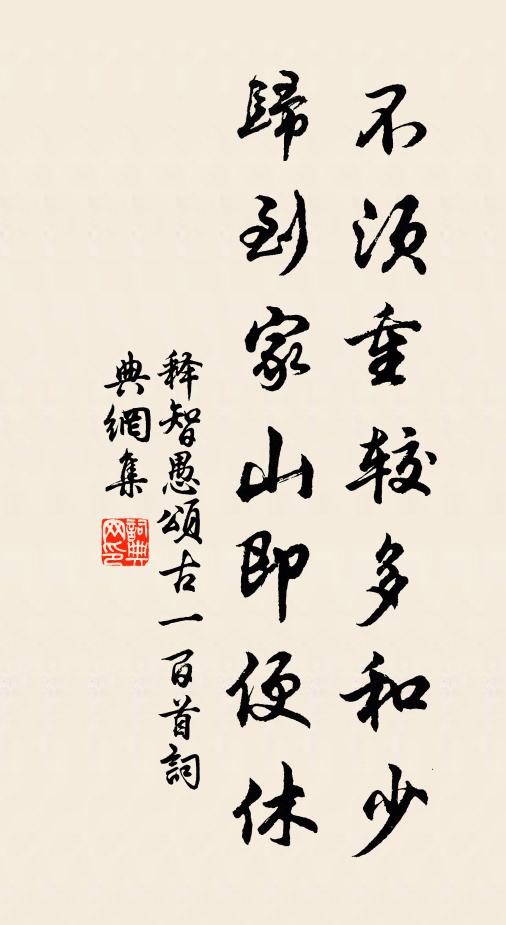 不须重较多和少
歸到家山即便休
释智愚頌古一百首詞
典網集
詞典网印